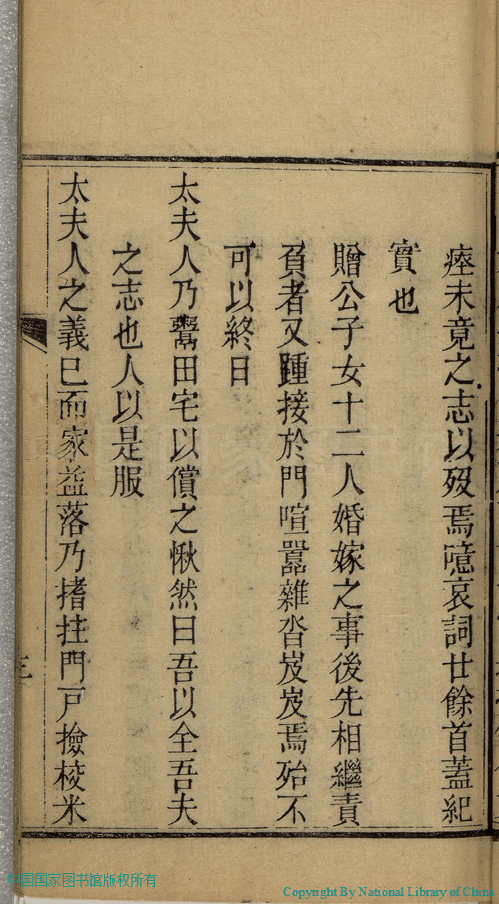 瘞未竟之志以歿焉噫哀詞廿餘首蓋紀
實也
贈公子女十二人婚嫁之事後先相繼責
負者又踵接於門喧囂雜沓岌岌焉殆不
可以終日
太夫人乃鬻田宅以償之愀然曰吾以全吾夫
之志也人以是服
太夫人之義巳而家益落乃搘拄門戸撿校米
中国国家图书馆版权所有
Copyright By National Library of China